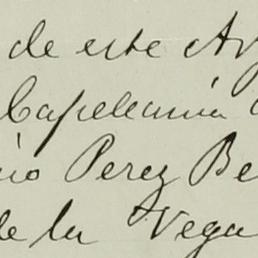 de este Ar
Capellania
io Perez Be
de la Vega